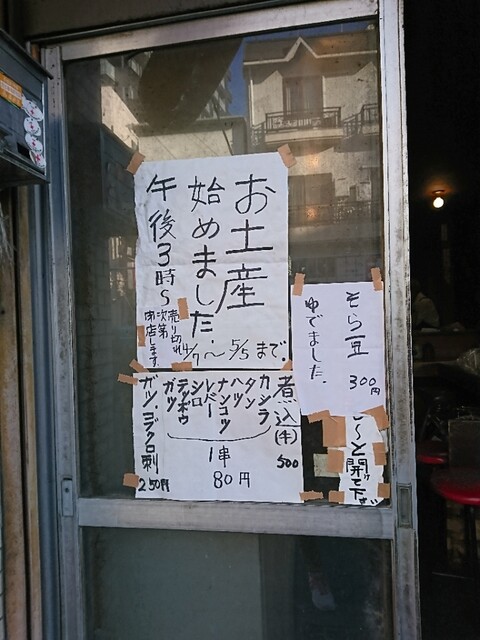 お土産
始めました。
4/7〜5/5まで。
午後3時〜
売り切れ
次第
閉店します。
そら豆 300円
ゆでました。
煮込(牛) 500
カシラ
タン
ハツ
ナンコツ
レバー
シロ
テッポウ
ガツ
1串
80円
ガツ、コブクロ刺
250円
〜と開て下さい